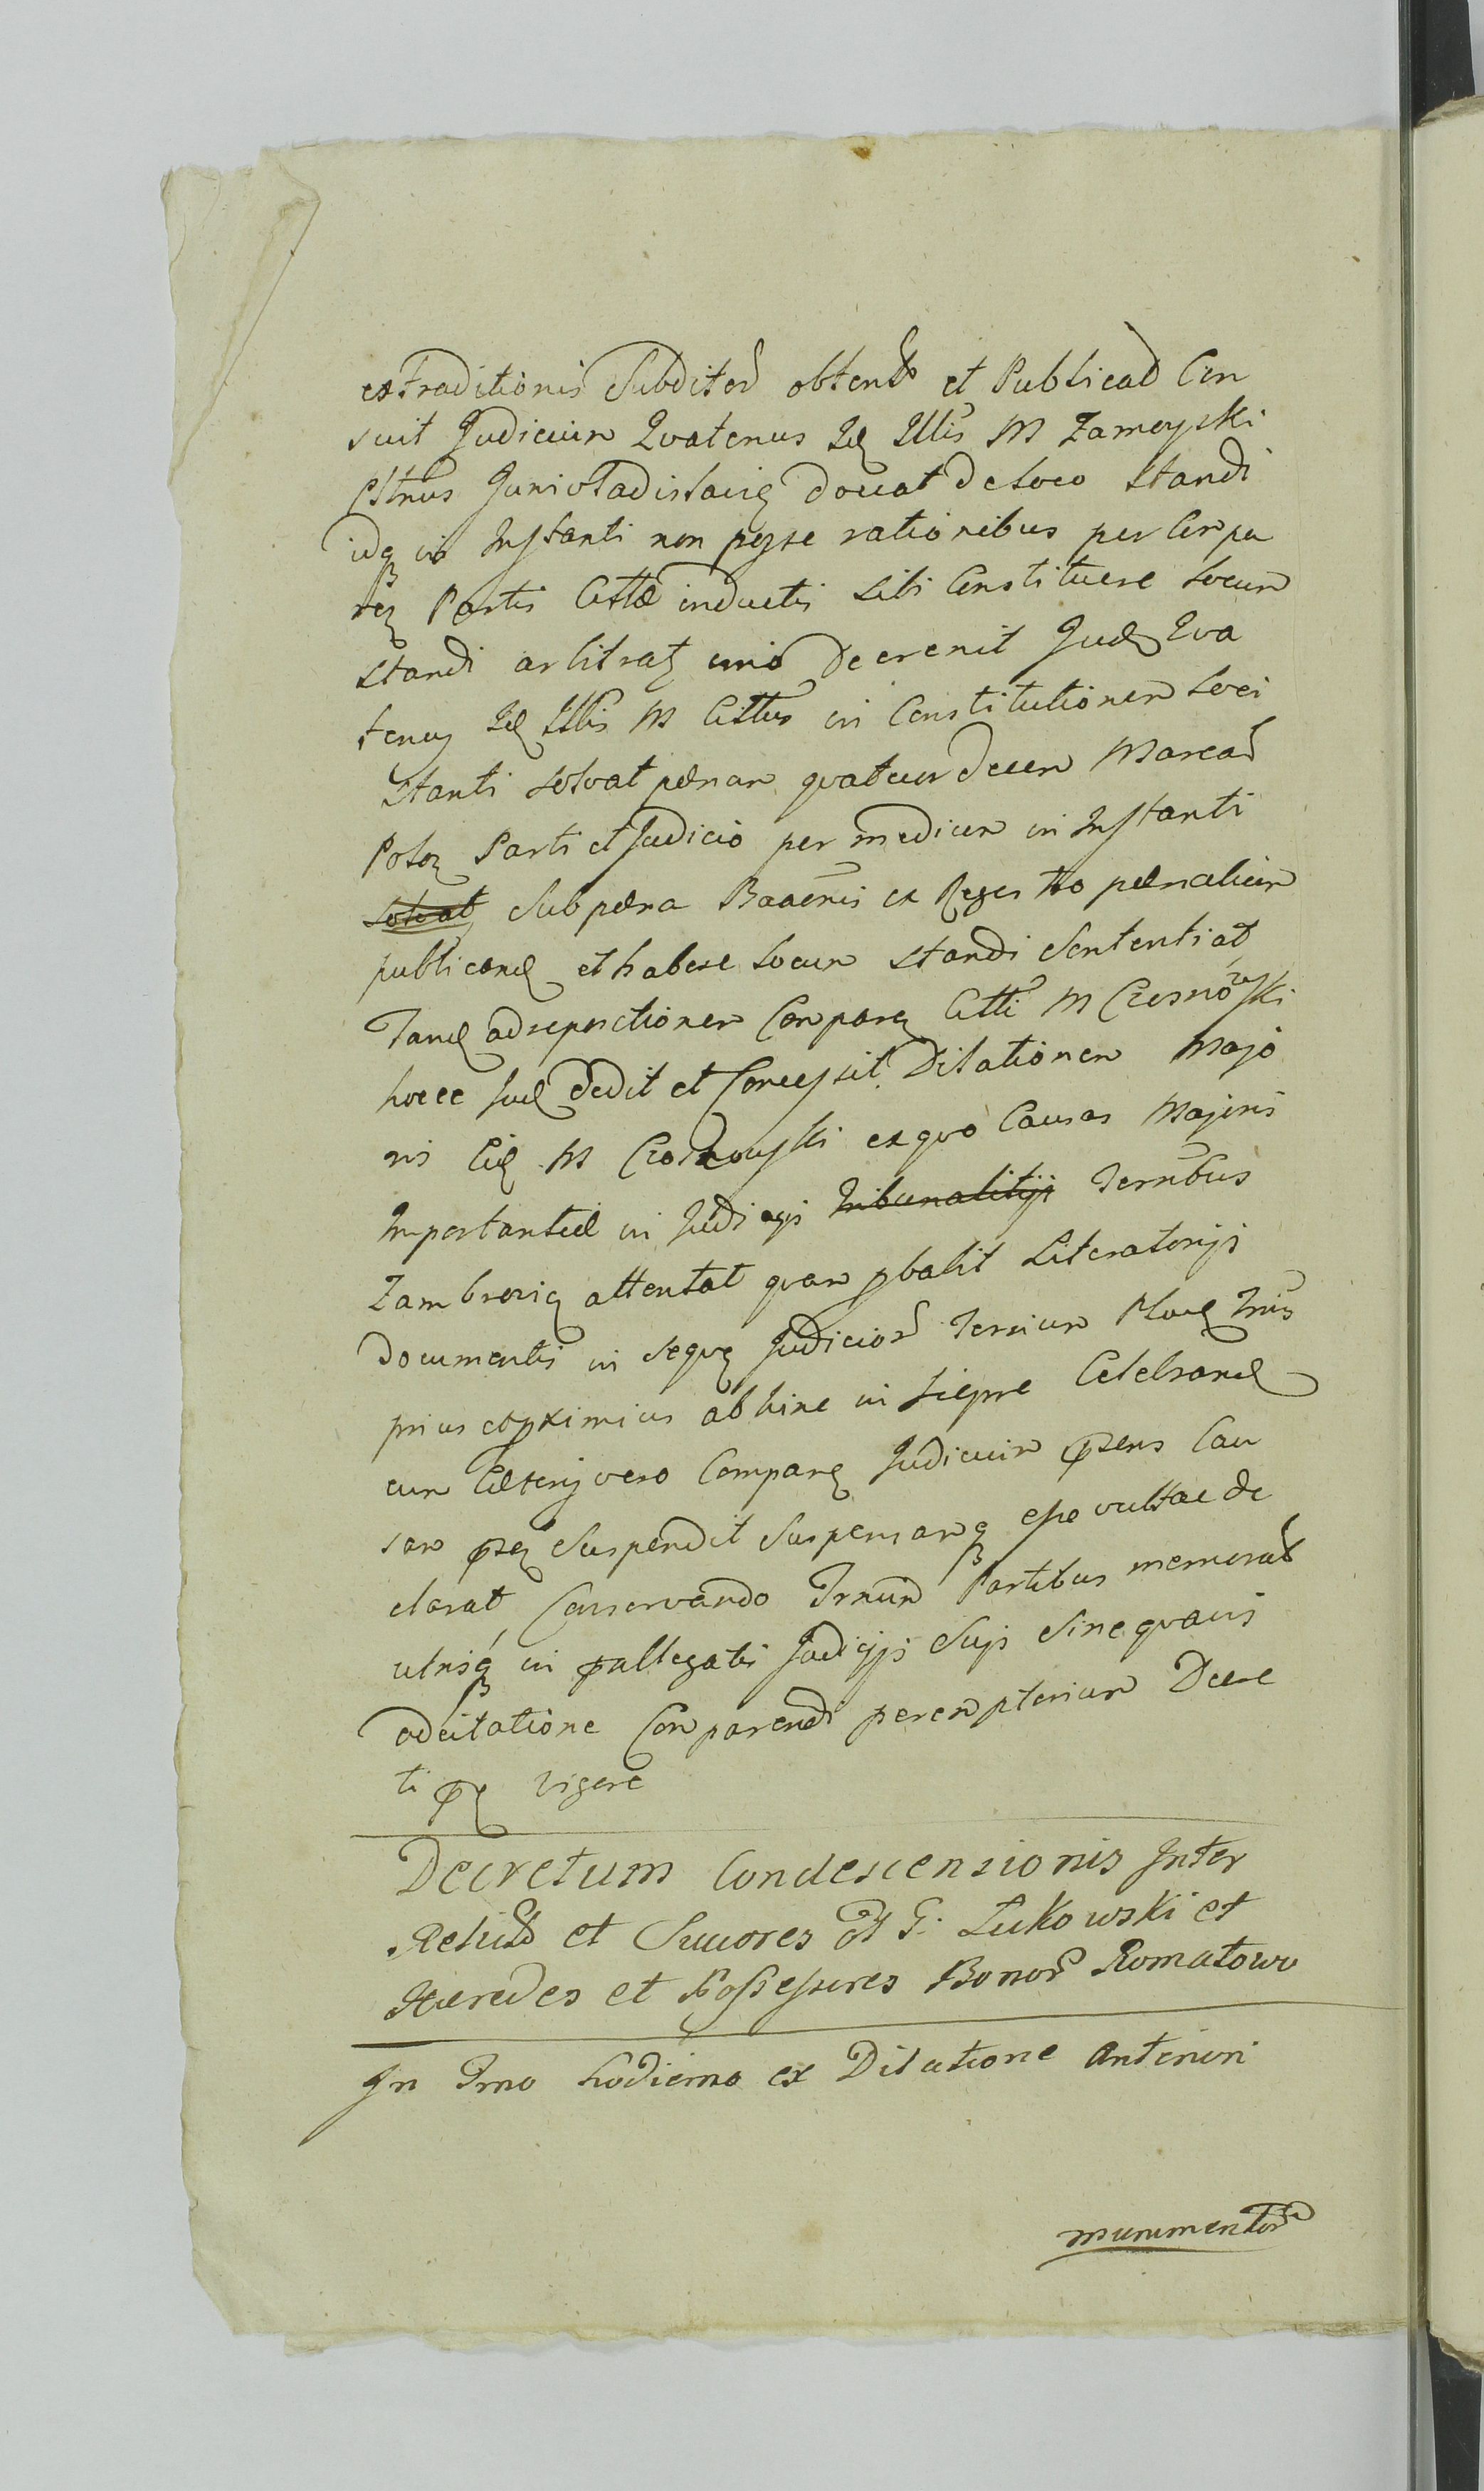 extraditionis Subditor obtent et Publicat Cen
suit Judicium Qvatenus Idq Illris M Zamoyski
Cstnus Jurio Ladislavieq doceat de loco standi
idq in Instanti non posse rationibus per Compa
req Partis Cittae inductis sibi Constituere locum
standi arbitratq imo decrevit Judq Qva
tenus Idq Illris M Cittus in Constitutionem loci
standi solvat paenam qvatuordecem Marcar
Polq Parti et Judicio per medium in Instanti
solvat sub paena Bannis ex Regestro paenalium
publicandq et habere locum standi Sententiat
Tandq ad repositionem Comparq Citti M Crosnowski
hocce Judq dedit et Concessit Dilationem Majo
ris Eidq M Croskowski ex qvo Causas Majoris
Importantiae in Judicijs Tribunalitijs Terribus
Zambrovieq attentat qvam pbabit Literatorijs
Documentis in seqvq Judicior Terrium Plocq Trnis
prius et pximius abhinc in Siepre Celebrandq
cum Caeterijs vero Comparq Judicium pzens Cau
sam pzeq Suspendit Suspensamq esse vult ac de
clarat Conservando Trnum Partibus memorat
utrisq in pallegatis Judicijs Suis Sine qvavis
adcitatione Comparendi peremptorium Decre
ti pq vigore
Decretum Condescensionis Inter
Relict et Succores olt G. Lukowski et
Haeredes et Possessores Bonor Romatowo
In Trno hodierno ex Dilatione Anteriori
munimentor